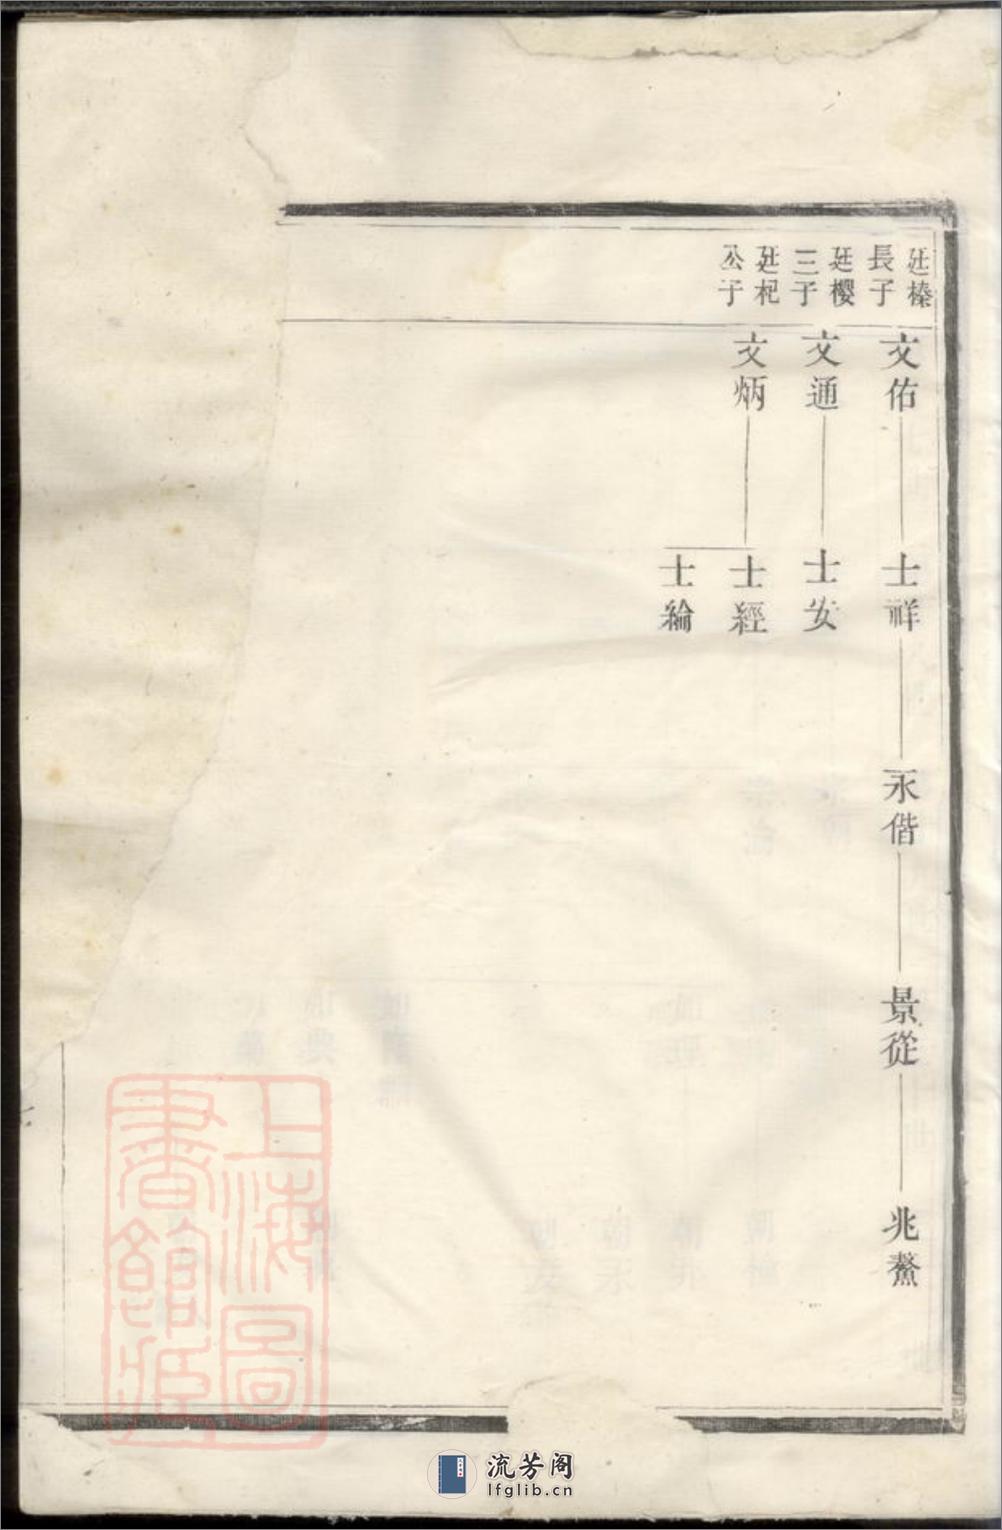 廷榛
長子
文佑
士祥
永偕
景從
兆鰲
廷櫻
三子
文通
士安
廷杞
公子
文炳
士經
士綸
上海圖
書館藏
流芳阁
lfglib.cn